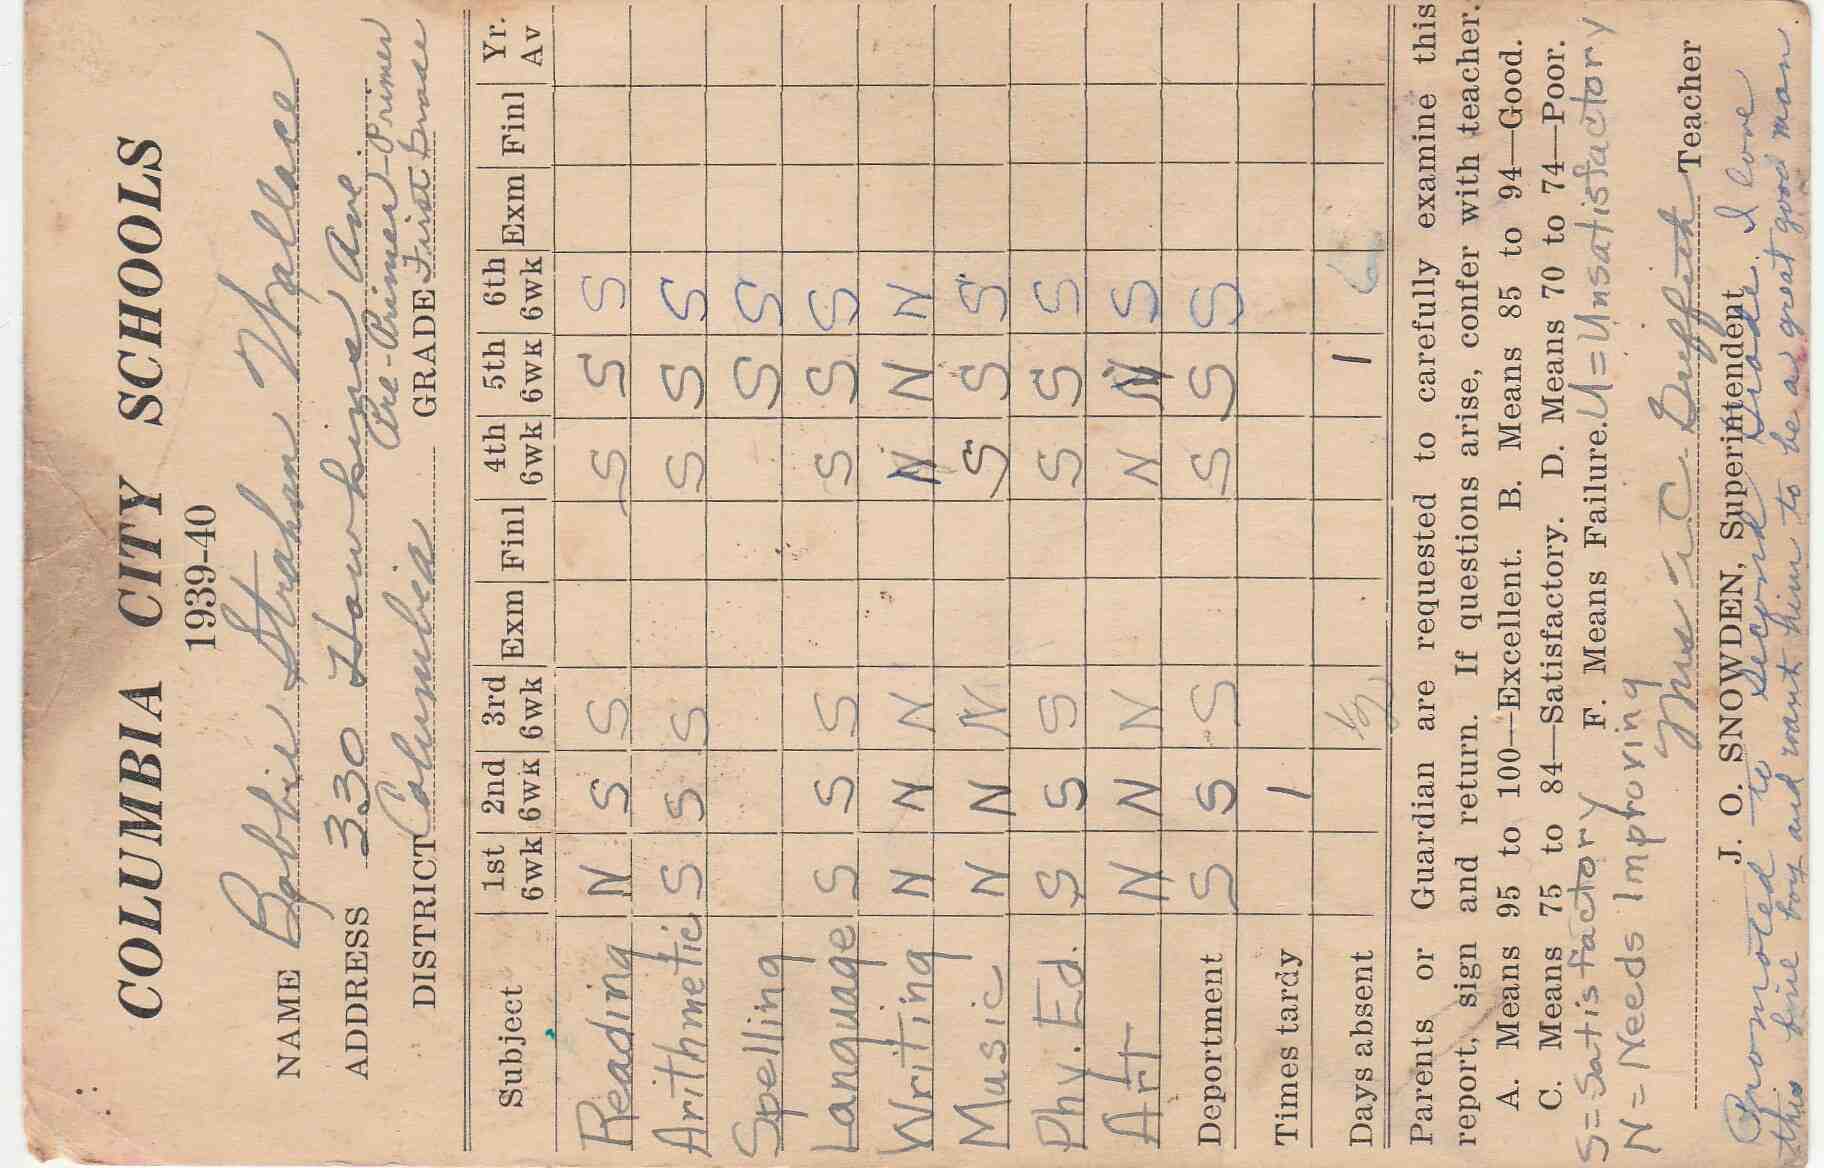 COLUMBIA CITY SCHOOLS
1939-40
NAME Bobbie Strahan Wallace
ADDRESS 330 Hawkins Ave
Pre-Primer-Primer
DISTRICT Columbia GRADE First Grade
Subject 1st 6wk 2nd 6wk 3rd 6wk Exm Finl 4th 6wk 5th 6wk 6th 6wk Exm Finl Yr. Av
Reading N S S S S S
Arithmetic S S S S S S
Spelling S S
Language S S S S S S
Writing N N N N N N
Music N N N S S S
Phy. Ed. S S S S S S
Art N N N N N S
Deportment S S S S S S
Times tardy 1
Days absent 1 6
Parents or Guardian are requested to carefully examine this
report, sign and return. If questions arise, confer with teacher.
A. Means 95 to 100—Excellent. B. Means 85 to 94—Good.
C. Means 75 to 84—Satisfactory. D. Means 70 to 74—Poor.
S=Satisfactory F. Means Failure. U=Unsatisfactory
N=Needs Improving
Mrs C. Griffith Teacher
J. O. SNOWDEN, Superintendent
Promoted to Second Grade. I love
this fine boy and want him to be a great good man.